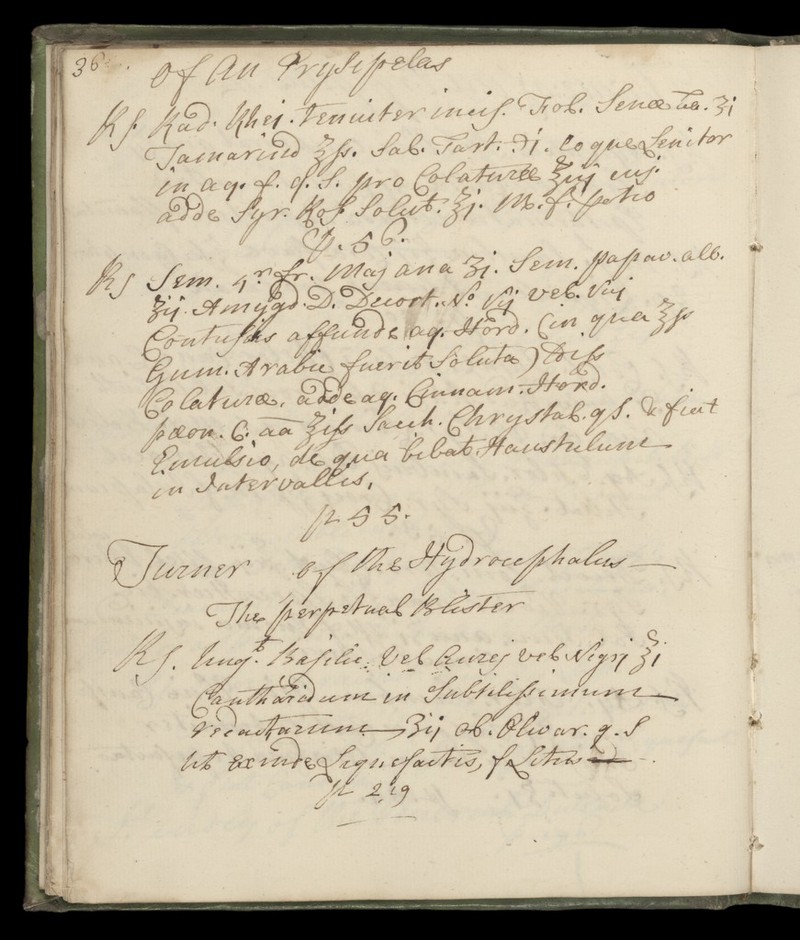 36.
Of An Erysipelas
Rs. Rad. Rhei. tenuiter incis. Fol. Senæ āa. ʒi
Tamarind ℥ss. Sal. Tart. ℈i. Coque Lenitor
in aq. f. q. S. pro Colaturæ ℥iij cuj.
adde Syr. Ros. Solut. ℥j. M. f. potio
p. 56.
Rs Sem. 4r. fr. Maj ana ʒi. Sem. papav. alb.
ʒij. Amygd. D. Decort. No. vij vel. viij
Contusis affunde aq. Hord. (in qua ℥ss
Gum. Arabic fuerit Soluta) ℔iss
Colaturæ, adde aq. Cinnam. Hord.
pæon. C. aa ℥iss Sacch. Chrystal. qS. & fiat
Emulsio, de qua bibat Haustulum
in Intervallis.
p 55.
Turner of the Hydrocephalus
The perpetual Blister
Rs. Ungt. Basilic. Vel Aurej vel Nigrj ℥i
Cantharidum in Subtilissimum
redactarum ʒij ol. Olivar. q. S
ut exinde Liquefactis, f Litus
p 219